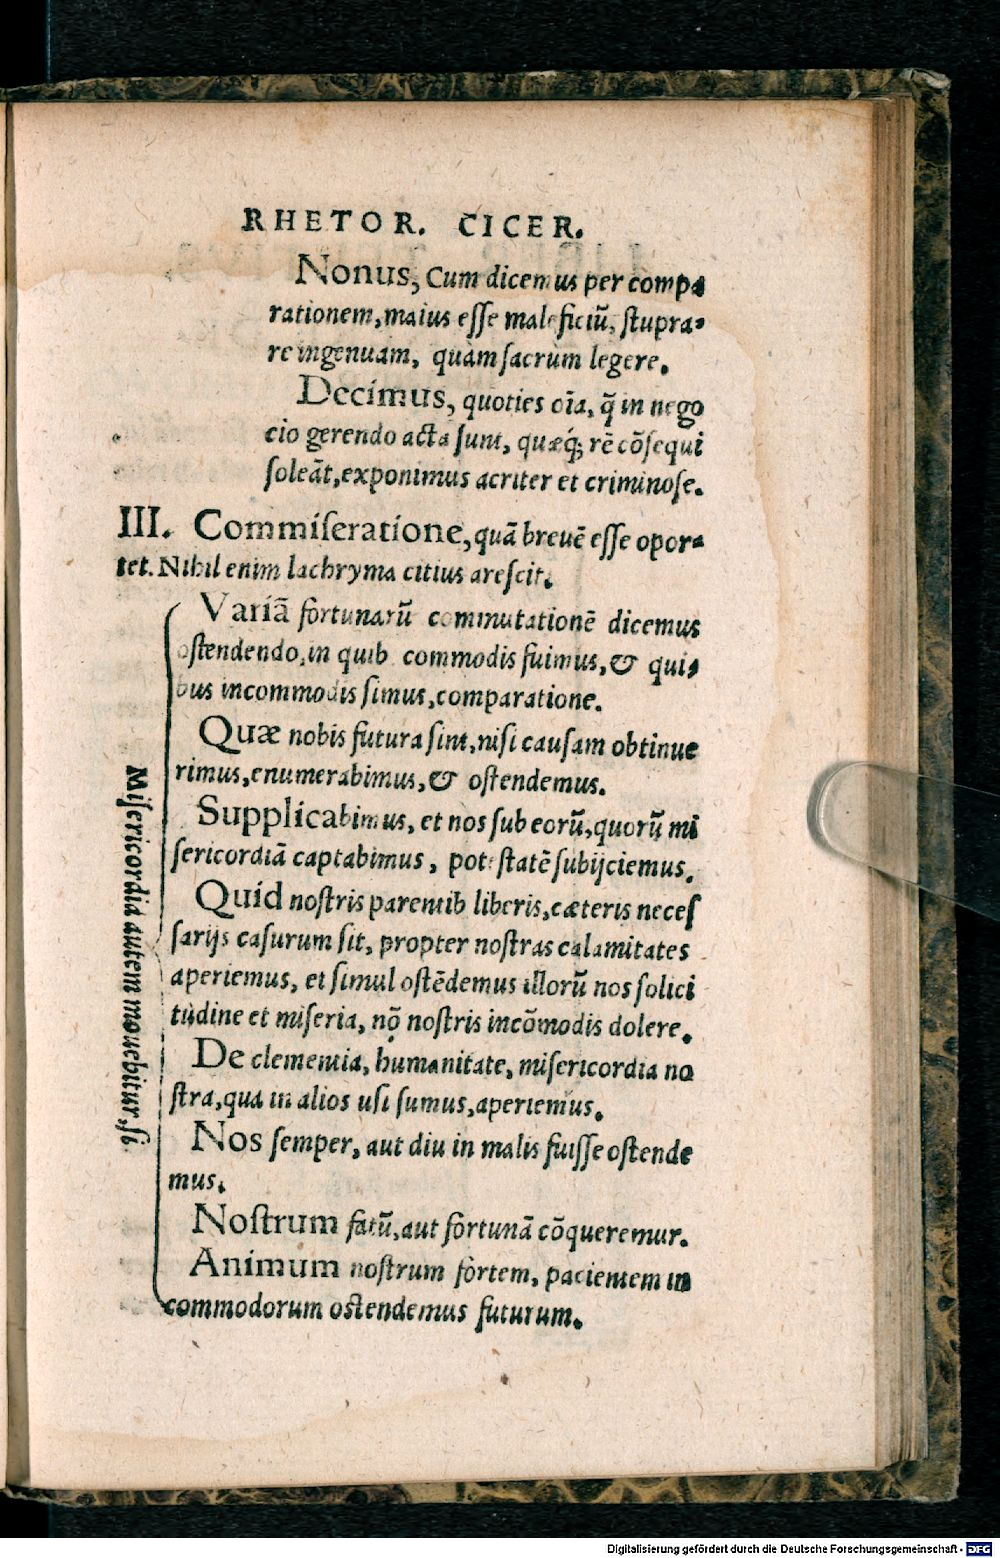 RHETOR. CICER.
Nonus, Cum dicemus per compa
rationem, maius esse maleficiũ, stupra-
re ingenuam, quàm sacrum legere.
Decimus, quoties oĩa, q̃ in nego
cio gerendo acta sunt, quæq; rẽ cõsequi
soleãt, exponimus acriter et criminose.
III. Commiseratione, quã breuẽ esse opor-
tet. Nihil enim lachryma citius arescit.
Misericordia autem mouebitur, si
Variã fortunarũ commutationẽ dicemus
ostendendo, in quib commodis fuimus, & qui-
bus incommodis simus, comparatione.
Quæ nobis futura sint, nisi causam obtinue
rimus, enumerabimus, & ostendemus.
Supplicabimus, et nos sub eorũ, quorũ mi
sericordiã captabimus, potestatẽ subijciemus.
Quid nostris parentib liberis, cæteris neces
sarijs casurum sit, propter nostras calamitates
aperiemus, et simul ostẽdemus illorũ nos solici
tudine et miseria, nõ nostris incõmodis dolere.
De clementia, humanitate, misericordia no
stra, qua in alios usi sumus, aperiemus.
Nos semper, aut diu in malis fuisse ostende
mus.
Nostrum fatũ, aut fortunã cõqueremur.
Animum nostrum fortem, pacientem in
commodorum ostendemus futurum.
Digitalisierung gefördert durch die Deutsche Forschungsgemeinschaft - DFG